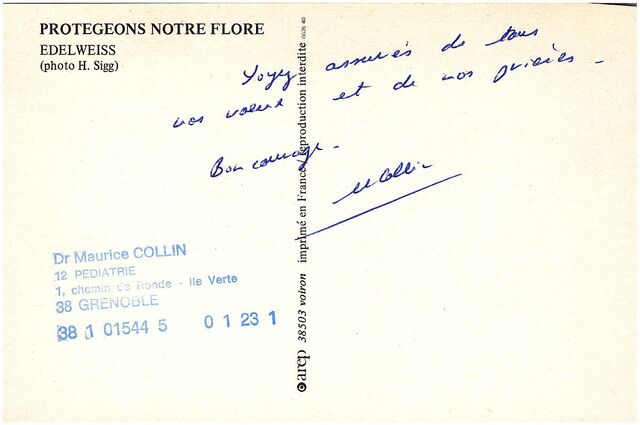 PROTEGEONS NOTRE FLORE
EDELWEISS
(photo H. Sigg)
Soyez assurés de tous
nos voeux et de nos prières.
Bon courage.
M Collin
Dr Maurice COLLIN
12 PEDIATRIE
1, chemin de Ronde - Ile Verte
38 GRENOBLE
38 1 01544 5 0 1 23 1
arep 38503 voiron imprimé en France/reproduction interdite 6635 40